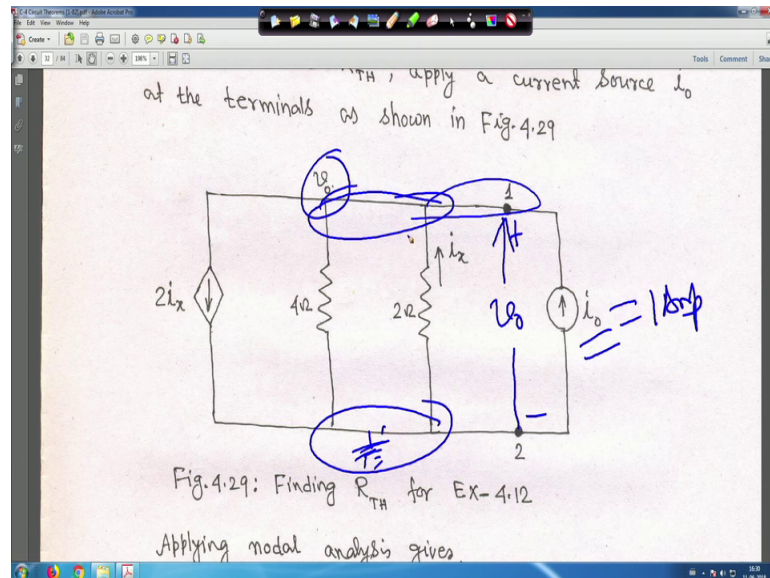 C-4 Circuit Theorems [1-82].pdf - Adobe Acrobat Pro
File Edit View Window Help
Create
32 / 84 198% Tools Comment
R_TH, apply a current source i_o
at the terminals as shown in Fig. 4.29
v_o
1
+
2i_x
4Ω
2Ω
i_x
v_o
i_o
= 1 Amp
-
2
Fig. 4.29: Finding R_TH for EX-4.12
Applying nodal analysis gives
16:30